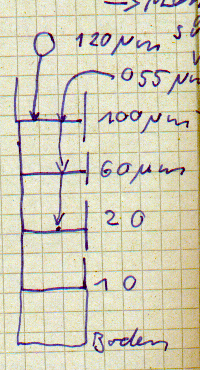 120 µm
55 µm
100 µm
60 µm
20
10
Boden